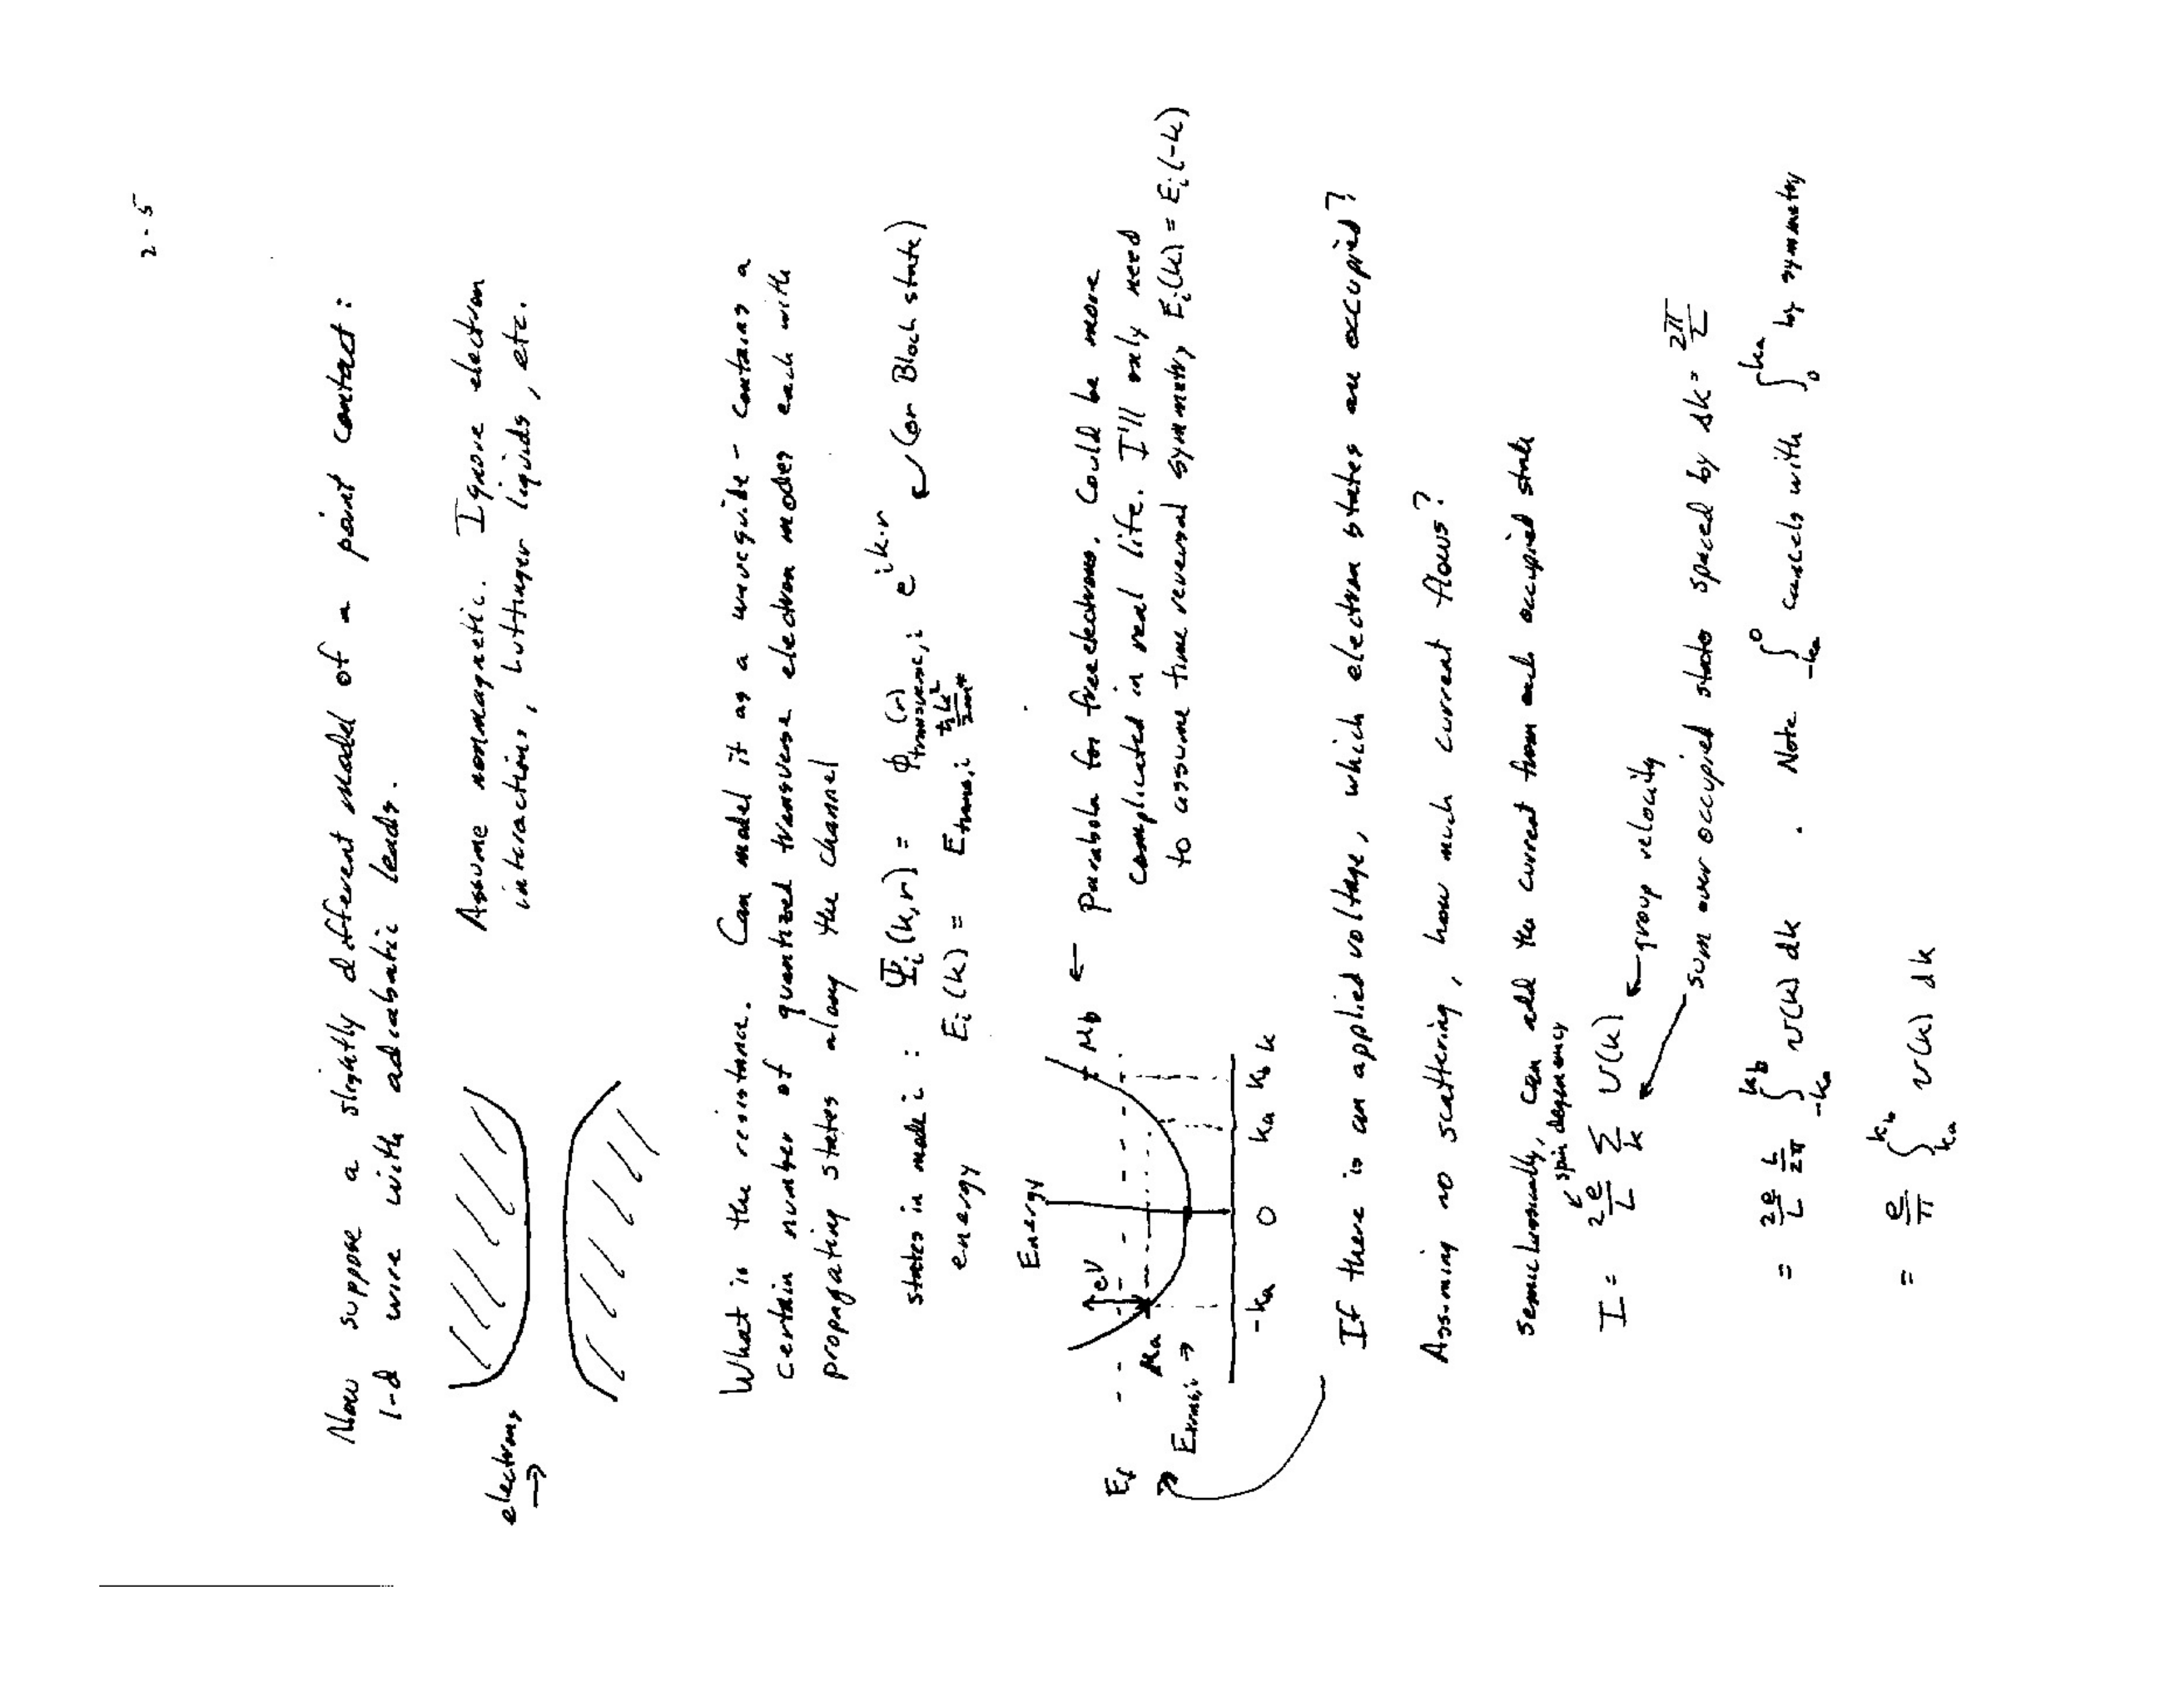 2-5
Now suppose a slightly different model of a point contact:
1-d wire with adiabatic leads.
electrons →
Assume nonmagnetic. Ignore electron
interactions, Luttinger liquids, etc.
What is the resistance. Can model it as a waveguide - contains a
certain number of quantized transverse electron modes each with
propagating states along the channel
states in mode i : Ψ_i(k,r) = φ_{transverse,i}(r) e^{ik·r} ↙ (or Bloch state)
energy E_i(k) = E_{trans,i} ħ²k²/2m*
Energy
E_f
μ_a
↑eV
μ_b
E_{trans,i} →
-k_a 0 k_a k_b k
← Parabola for free electrons. Could be more
complicated in real life. I'll only need
to assume time reversal symmetry E_i(k) = E_i(-k)
If there is an applied voltage, which electron states are occupied?
Assuming no scattering, how much current flows?
semiclassically, can add the current from each occupied state
↙ spin degeneracy
I = 2 e/L Σ_k v(k) ← group velocity
sum over occupied states spaced by Δk = 2π/L
= 2e/L L/2π ∫_{-k_a}^{k_b} v(k) dk . Note ∫_{-k_a}^{0} cancels with ∫_{0}^{k_a} by symmetry
= e/π ∫_{k_a}^{k_b} v(k) dk